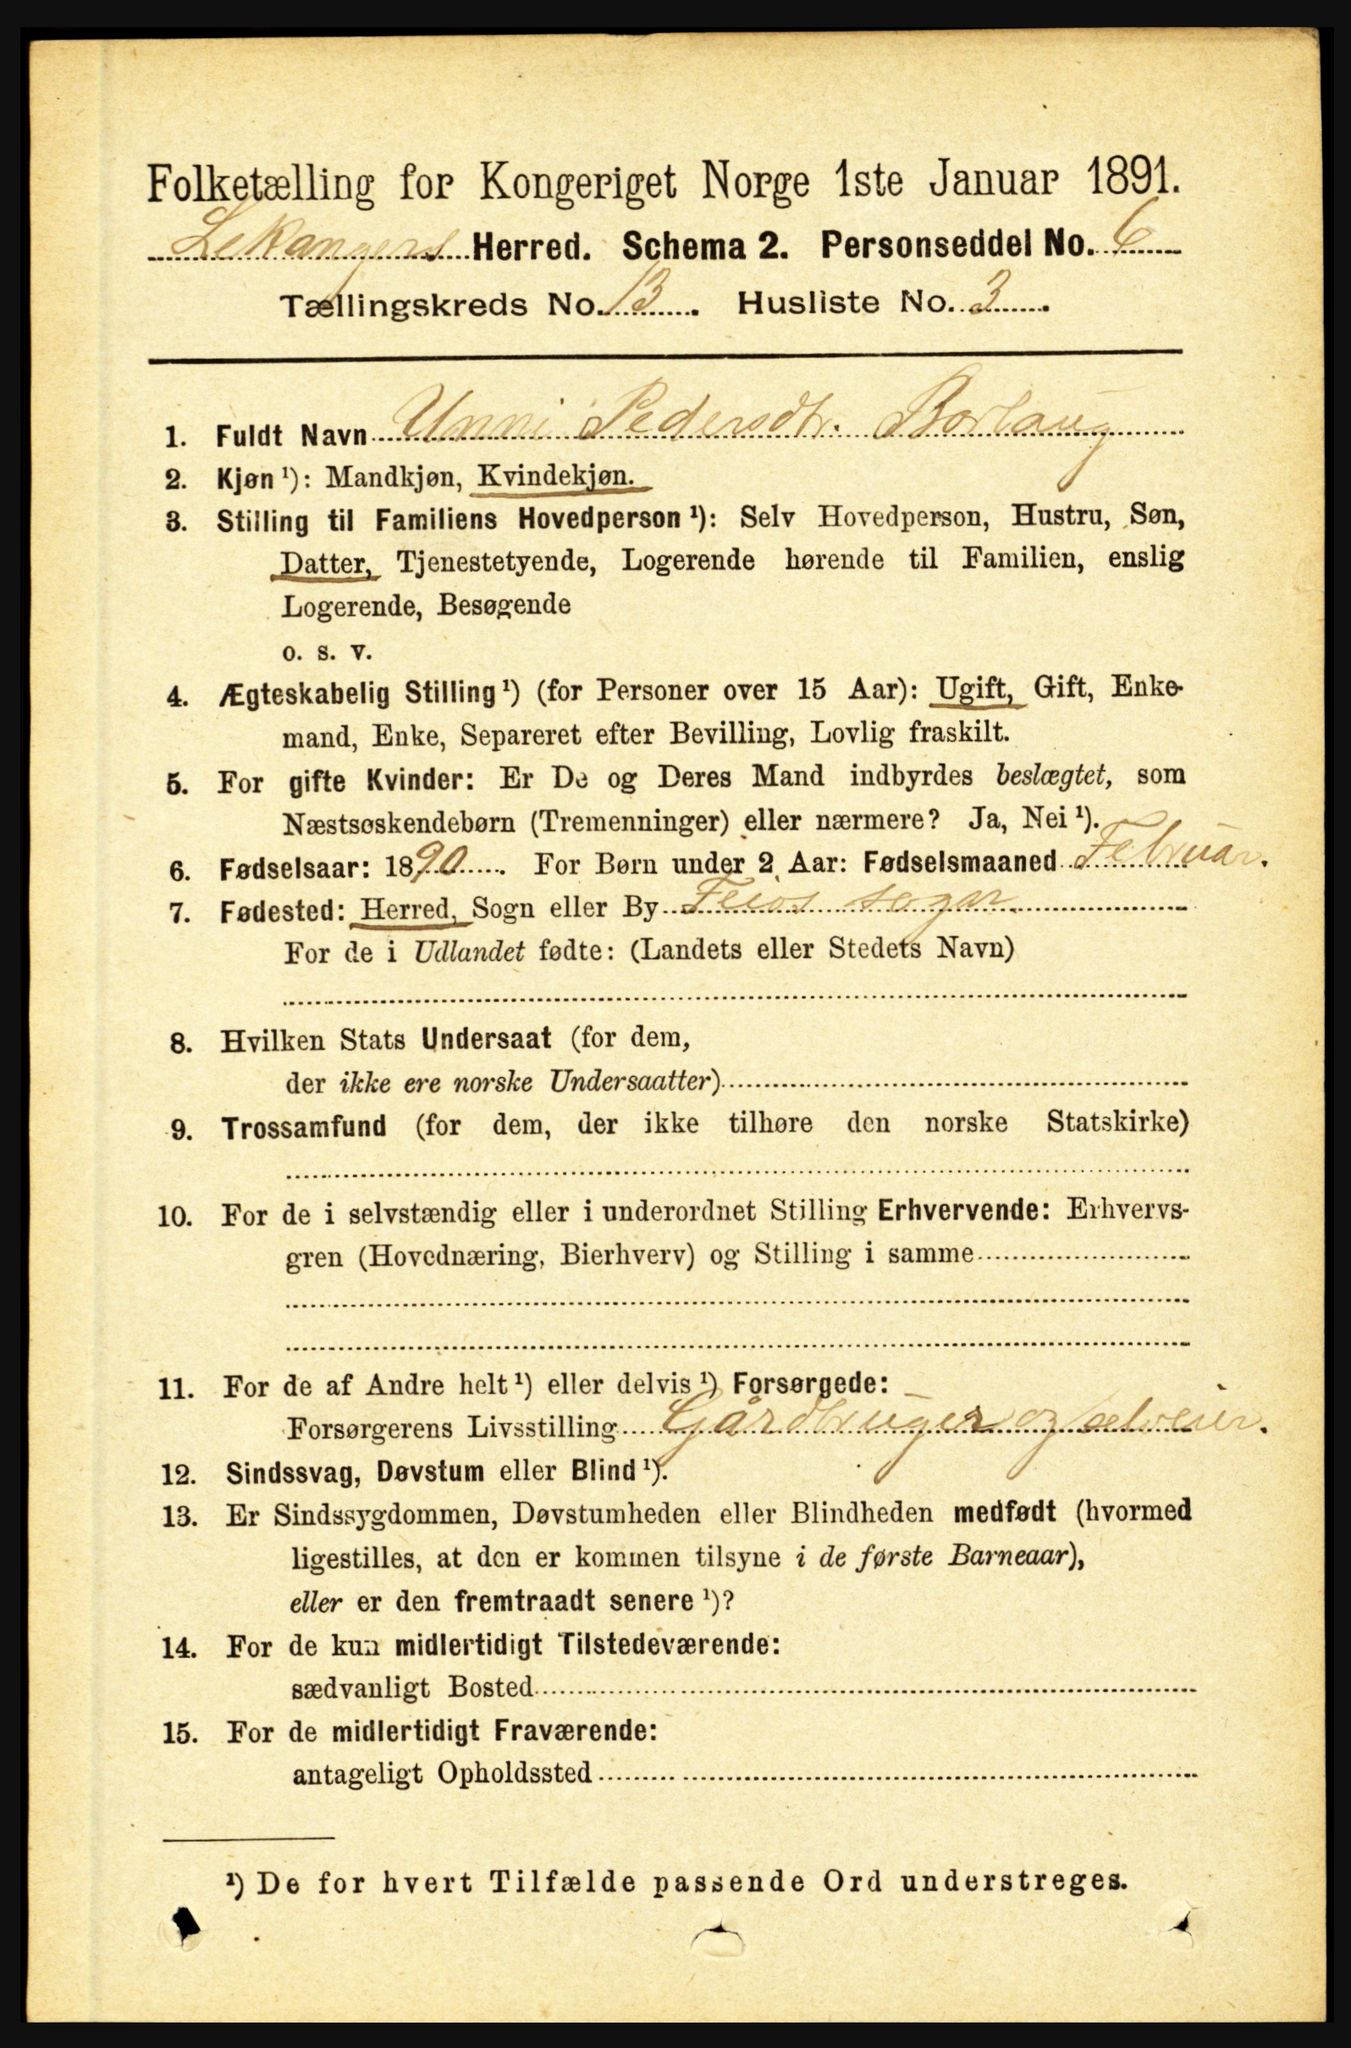 Folketælling for Kongeriget Norge 1ste Januar 1891.
Lekangers Herred. Schema 2. Personseddel No. 6
Tællingskreds No. 13. Husliste No. 3.
1. Fuldt Navn Unni Pedersdtr. Borlaug
2. Kjøn ¹): Mandkjøn, Kvindekjøn.
3. Stilling til Familiens Hovedperson ¹): Selv Hovedperson, Hustru, Søn,
Datter, Tjenestetyende, Logerende hørende til Familien, enslig
Logerende, Besøgende
o. s. v.
4. Ægteskabelig Stilling ¹) (for Personer over 15 Aar): Ugift, Gift, Enke-
mand, Enke, Separeret efter Bevilling, Lovlig fraskilt.
5. For gifte Kvinder: Er De og Deres Mand indbyrdes beslægtet, som
Næstsøskendebørn (Tremenninger) eller nærmere? Ja, Nei ¹).
6. Fødselsaar: 1890. For Børn under 2 Aar: Fødselsmaaned Februar.
7. Fødested: Herred, Sogn eller By Feios
For de i Udlandet fødte: (Landets eller Stedets Navn)
8. Hvilken Stats Undersaat (for dem,
der ikke ere norske Undersaatter)
9. Trossamfund (for dem, der ikke tilhøre den norske Statskirke)
10. For de i selvstændig eller i underordnet Stilling Erhvervende: Erhvervs-
gren (Hovednæring, Bierhverv) og Stilling i samme
11. For de af Andre helt ¹) eller delvis ¹) Forsørgede:
Forsørgerens Livsstilling Gårdbruger og selveier.
12. Sindssvag, Døvstum eller Blind ¹).
13. Er Sindssygdommen, Døvstumheden eller Blindheden medfødt (hvormed
ligestilles, at den er kommen tilsyne i de første Barneaar),
eller er den fremtraadt senere ¹)?
14. For de kun midlertidigt Tilstedeværende:
sædvanligt Bosted
15. For de midlertidigt Fraværende:
antageligt Opholdssted
¹) De for hvert Tilfælde passende Ord understreges.